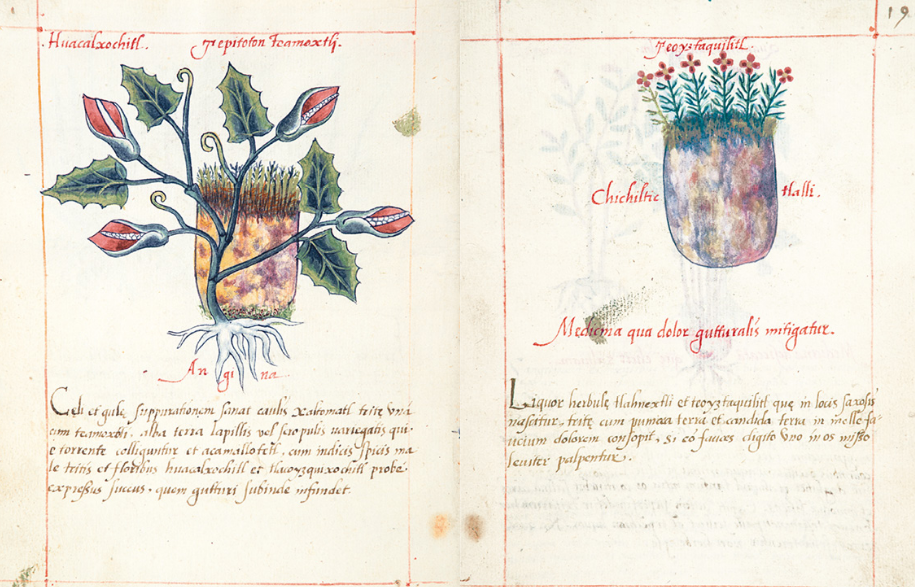 Huacalxochitl.
Tepitoton teamoxtli.
An gi na
Coli et gulę suppurationem sanat caulis xaltomatl tritę vná
cum teamoxtli, alba terra lapillis vel scrupulis variegatis qui
e torrente colliguntur et acamallotetl, cum indicis spicis ma
le tritis et floribus huacalxochitl et tlacoyzquixochitl probe
expressus succus. quem gutturi subinde infundet.
19
Teoyztaquilitl.
Chichiltic
tlalli.
Medicina qua dolor gutturalis mitigatur.
Liquor herbulę tlahnextli et teoyztaquilitl que in locis saxosis
nascitur, tritę cum pumicea terra et candida terra in melle fa
ucium dolorem consopit, si eo fauces digito vno in os misso
leuiter palpentur.